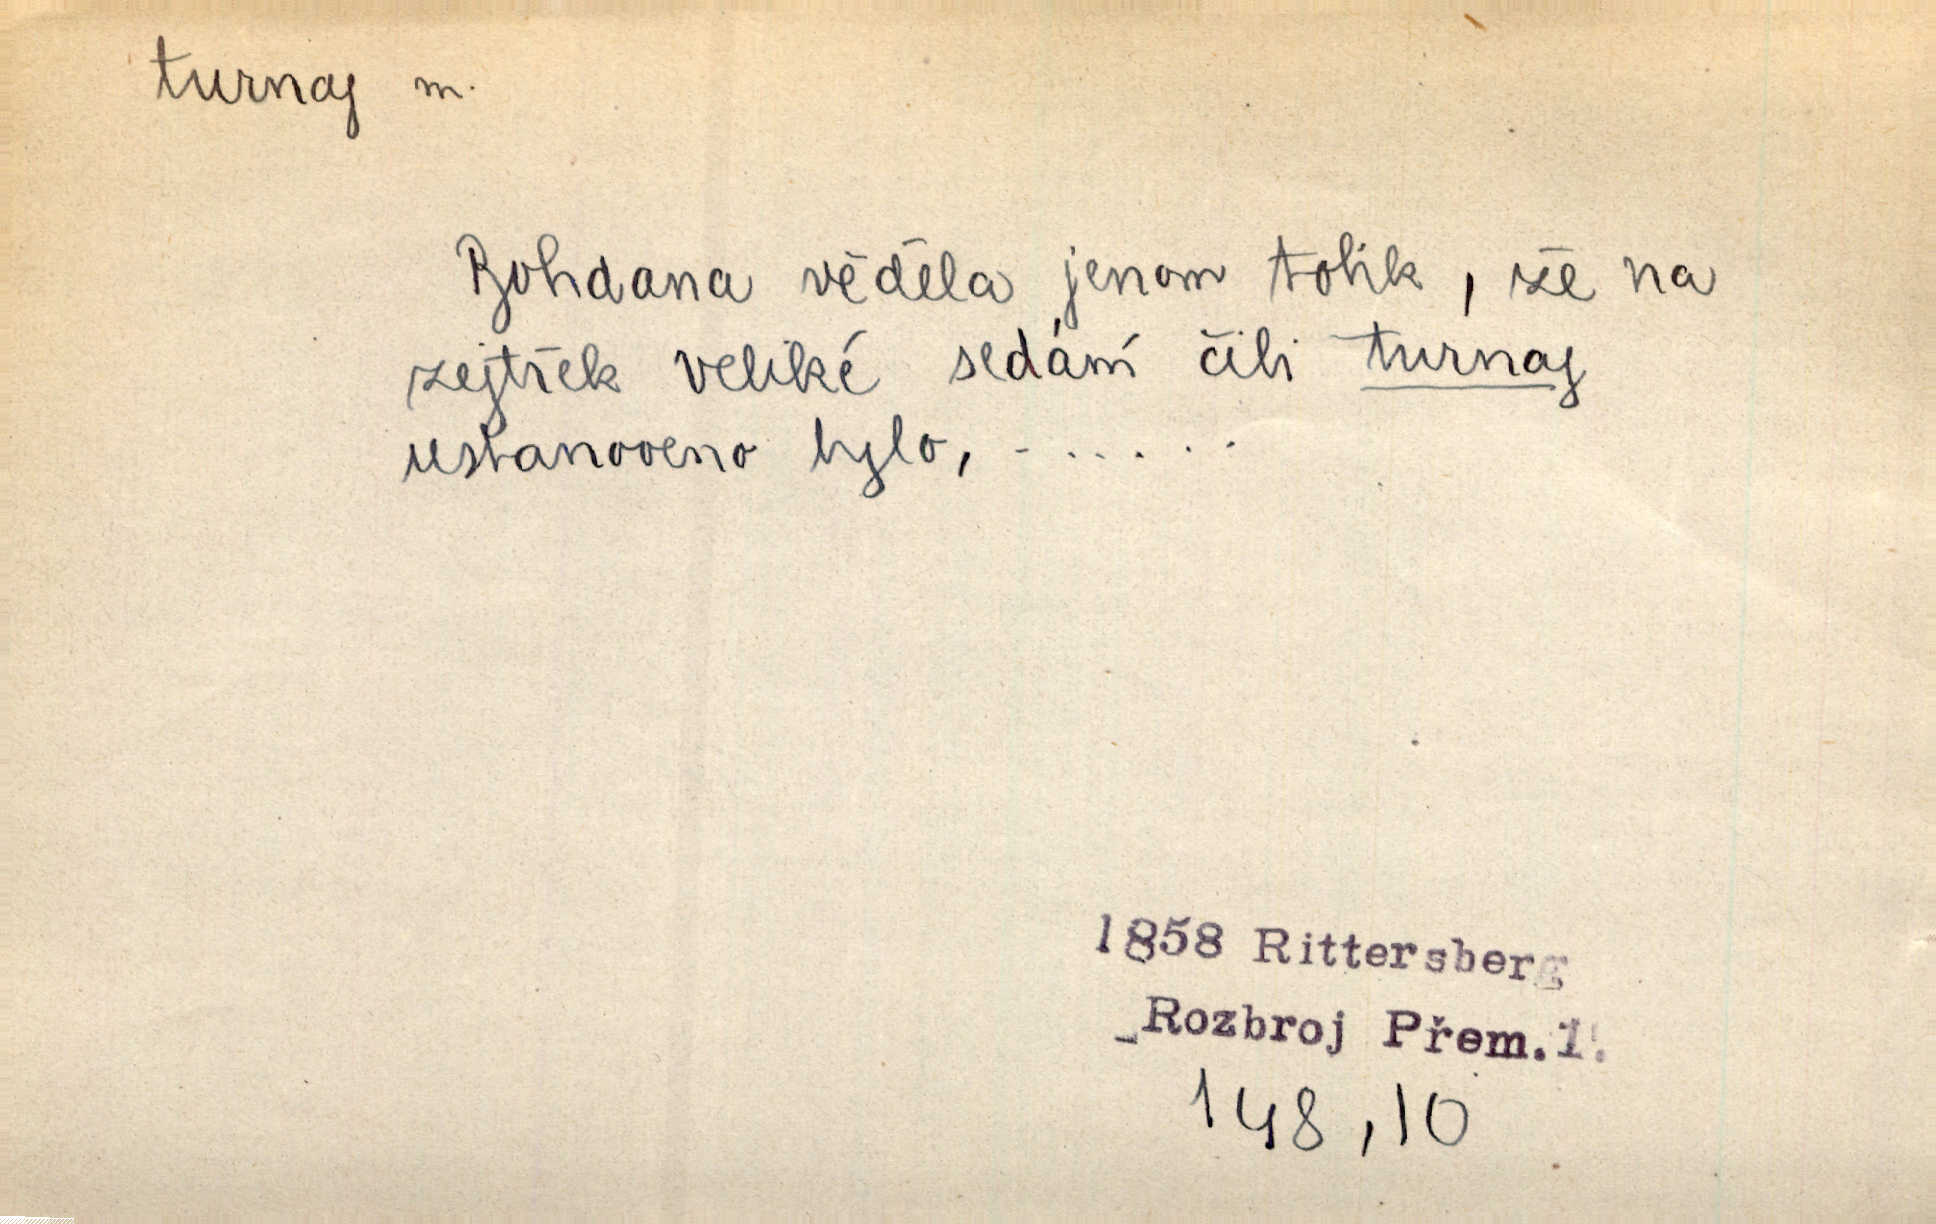 turnaj m.
Bohdana věděla jenom tolik, že na
zejtřek veliké sedání čili turnaj
ustanoveno bylo, - . . . . .
1858 Rittersberg
_Rozbroj Přem.1.
148,10